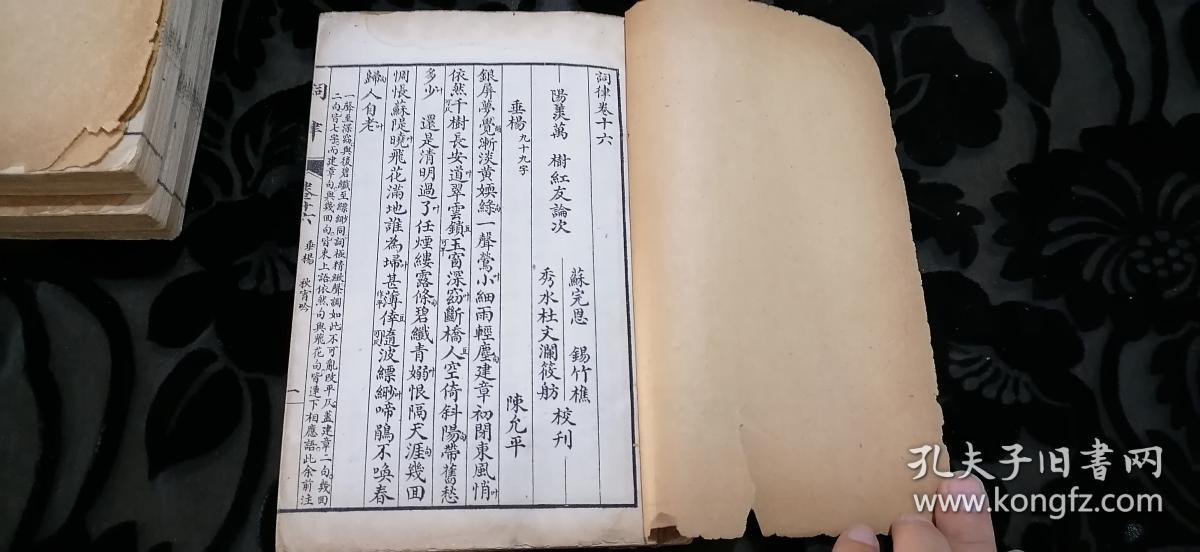 詞律卷十六
陽羨萬 樹紅友論次
蘇完恩 錫竹樵
秀水杜文瀾筱舫
校刊
垂楊 九十九字 陳允平
銀屏夢覺漸淡黃嫩綠一聲鶯小細雨輕塵建章初閉東風悄
依然千樹長安道翠雲鎖玉窗深窈斷橋人空倚斜陽帶舊愁
多少 還是清明過了任煙縷露條碧纖青嫋恨隔天涯幾回
惆悵蘇隄曉飛花滿地誰為埽甚薄倖隨波縹緲啼鵑不喚春
歸人自老
一聲至深窈與後碧纖至縹緲同詞極精緻聲調如此不可亂改平仄蓋建章二句幾回
二句皆七字而建章句與幾回句皆束上語依然句與飛花句皆連下相應語此余前注
詞律 卷十六 垂楊 秋宵吟 一
孔夫子旧書网
www.kongfz.com